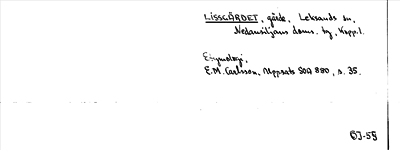 LISSGÄRDET, gärde, Leksands sn,
Nedansiljans doms. hg, Kopp. l.
Etymologi.
E.M. Carlsson, Uppsats SOA 880, s. 35.